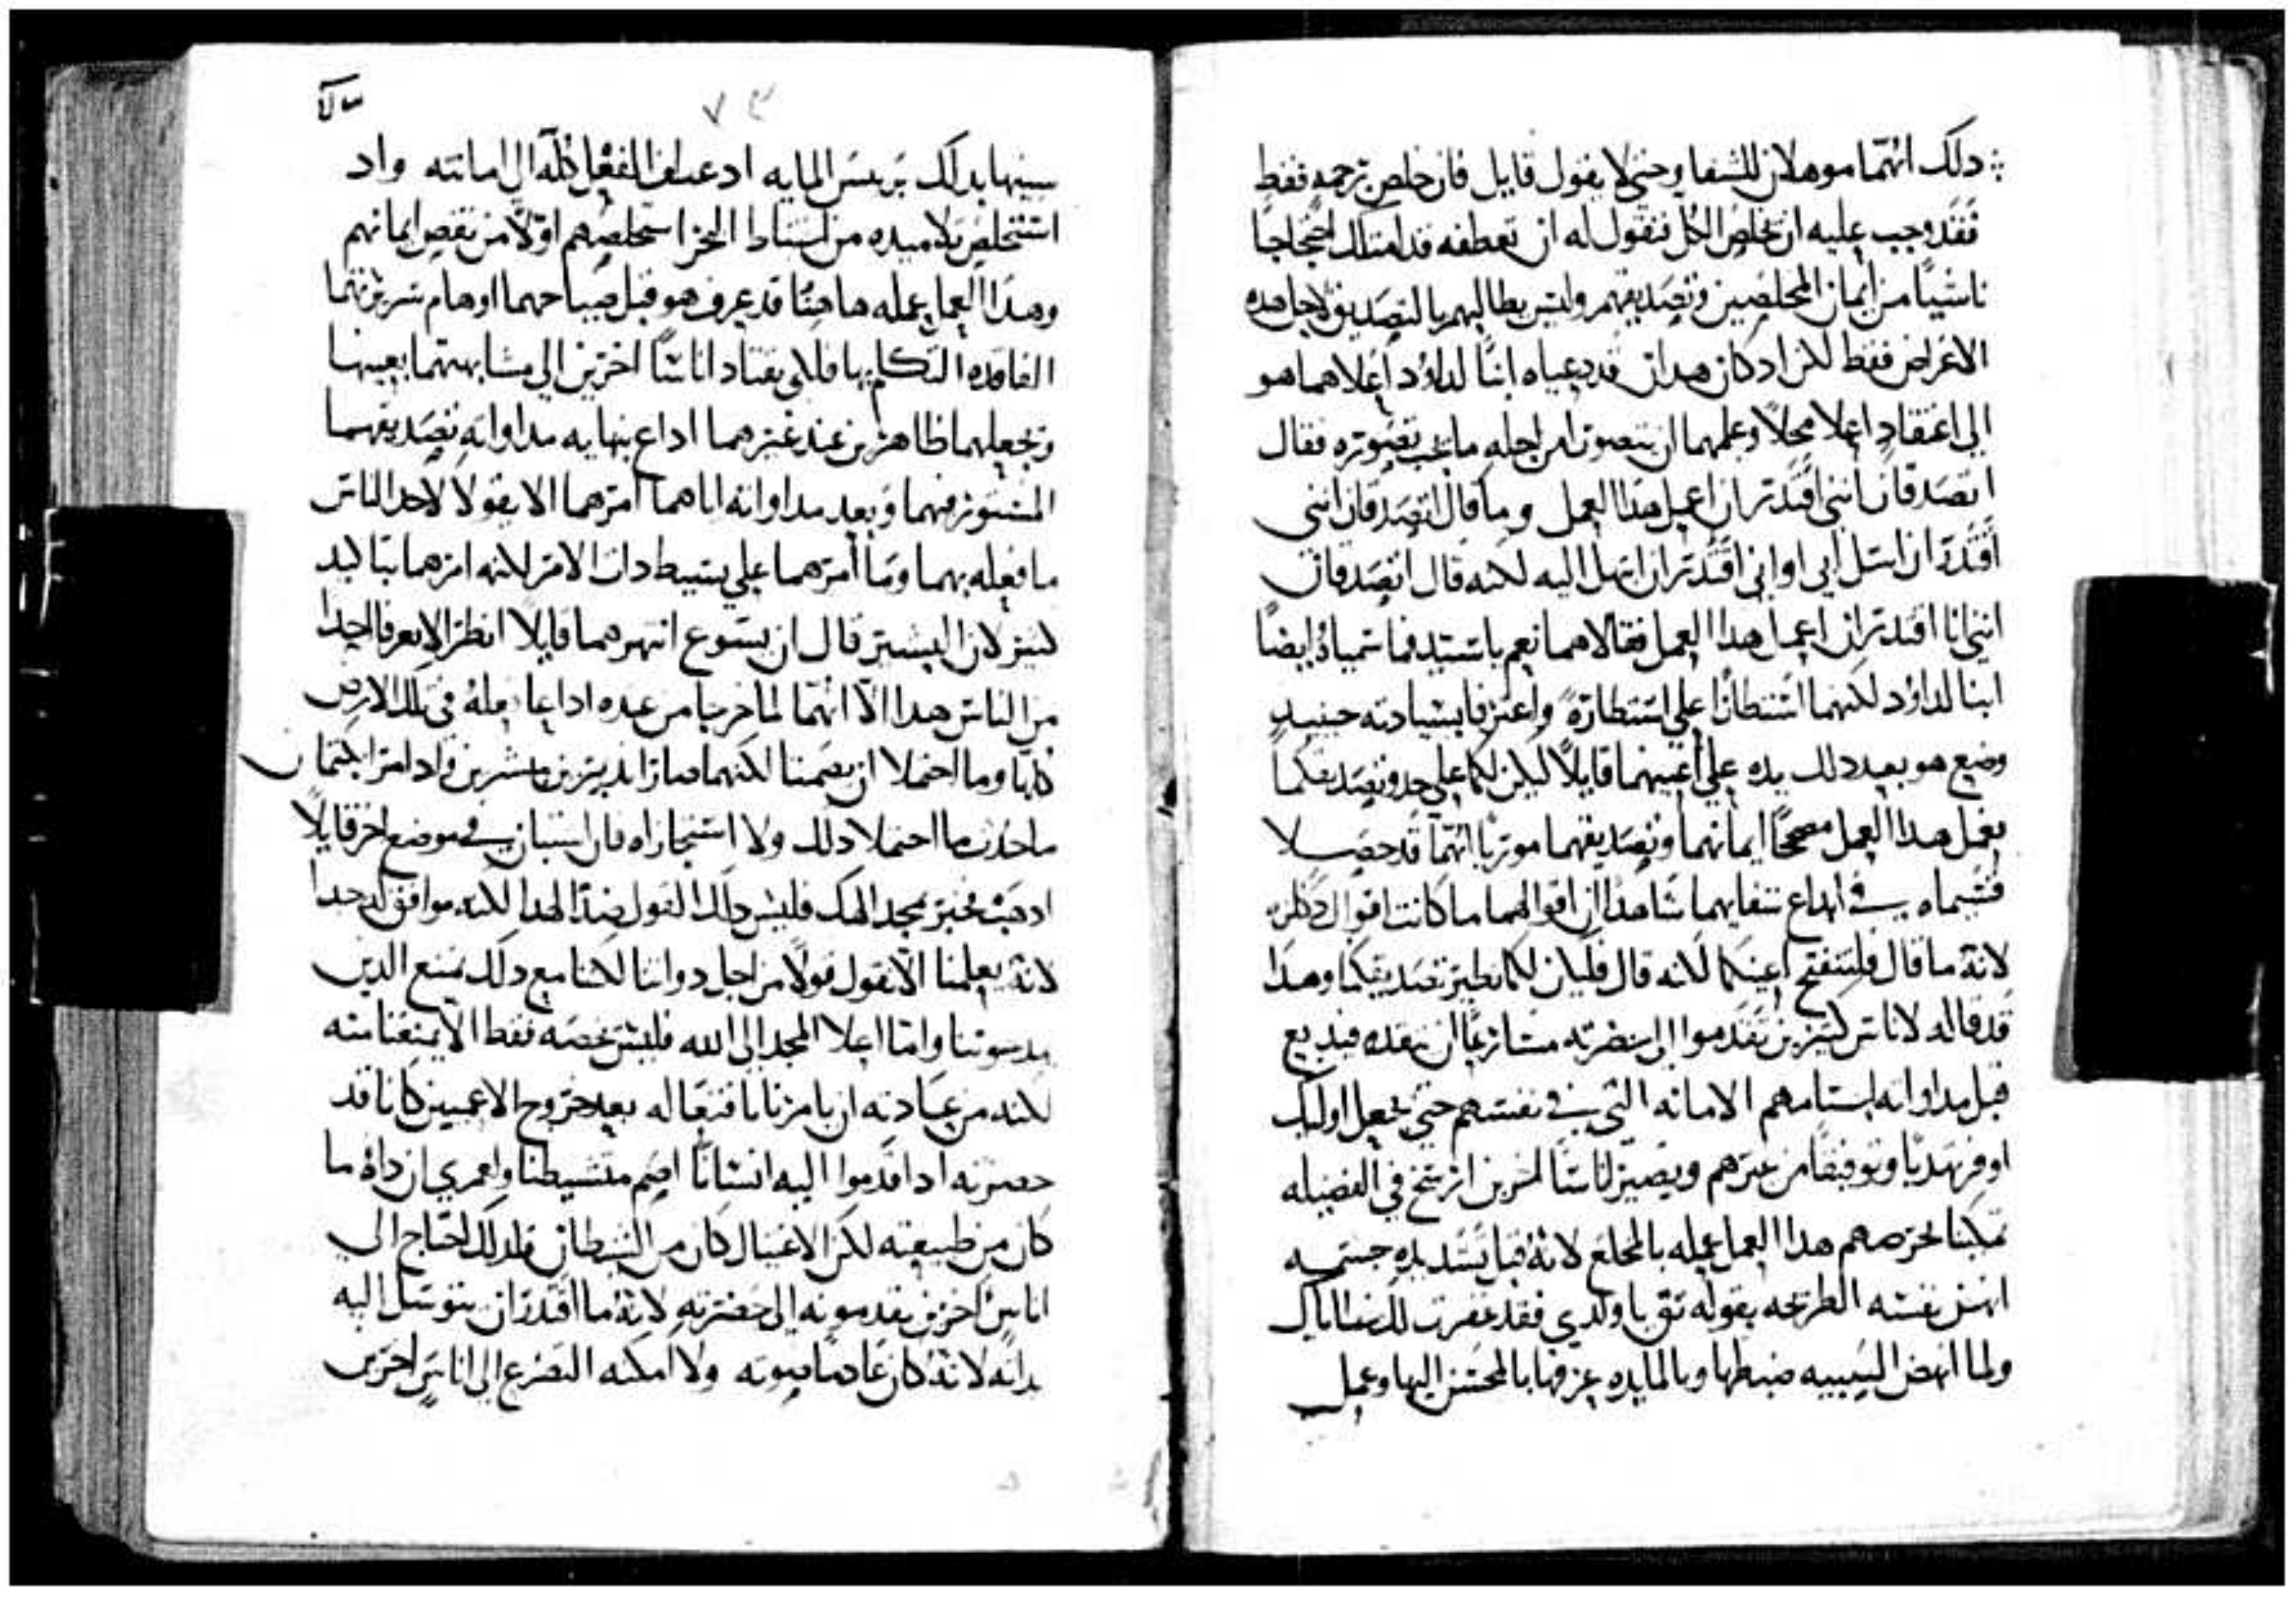 دلك انهما موهلان للشفا وحتى لا يقول قايل فان خلص برحمه فقط
فقد وجب عليه ان يخلص الكل فنقول له ان تعطفه قد امتلك احتجاجا
ناشيا من ايمان المخلصين وتصديقهم وليس يطالبهم بالتصديق لاجل هده
الاغراض فقط لكن اد كان هدان قد دعياه ابنا لداود اعلاهما هو
الى اعتقاد اعلا محلا وعلمهما ان يتصورا من اجله ما يجب تصوره فقال
اتصدقان انني اقتدر ان اعمل هدا العمل وما قال اتصدقان انني
اقتدر ان اسل ابي او اني اقتدر ان ابتهل اليه لكنه قال اتصدقان
انني انا اقتدر ان اعمل هدا العمل فقالا هما نعم يا سيد فما سمياه ايضا
ابنا لداود لكنهما استطارا على استطارة واعترفا بسيادته حينيد
وضع هو بعد دلك يده على اعينهما قايلا ليكن لكما على حدو تصديقكما
يعمل هدا العمل مصححا ايمانهما وتصديقهما موريا انهما قد حصلا
قسيماه في ابداع شفايهما شاهدا ان اقوالهما ما كانت اقوال
لانه ما قال فلتنفتح اعينكما لانه قال فليكن لكما نظير تصديقكما وهدا
قد قاله لاناس كثيرين تقدموا الى حضرته مسارعا ان
قبل مداواته اجسامهم الامانه التي في نفسهم حتى يجعل اوليك
اوفر تهديبا وتوفيقا من غيرهم ويصير اناسا اخرين ارسخ في الفضيله
هدا العمل عمله بالمخلع لانه قبل جسمه
انهض نفسه الطريحه بقوله تق يا ولدي فقد غفرت لك خطاياك
ولما انهض الصبيه ضبطها وبالمايده عرفها بالمحسن اليها وعمل
٧٣
بدلك اد عطف الفعل كله الى امانته واد
استخلص تلاميده من البحر استخلصهم اولا من نقص ايمانهم
وهدا العمل عمله هاهنا قد عرف هو قبل صياحهما اوهام سريرتهما
الفاقده التكلم بها فلكي يقتاد اناسا اخرين الى مشابهتهما بعينها
وتجعلهما ظاهرين عند غيرهما اداع بنهايه مداواته تصديقهما
المستور فيهما وبعد مداواته اياهما امرهما الا يقولا لاحد الناس
ما فعله بهما وما امرهما على بسيط دات الامر لكنه امرهما بتاكيد
كثير لان البشير قال ان يسوع انتهرهما قايلا انظرا لا يعرفا احدا
من الناس هدا الا انهما لما خرجا من عنده اداعا فعله في تلك الارض
كلها وما احتملا ان يصمتا لكنهما صارا نديرين مبشرين واد امرا بكتمان
ما حدث ما احتملا دلك ولا استجازاه فان استبان في موضع اخر قايلا
ادهب خبر بمجد الهك فليس دلك القول ضدا لهدا لكنه موافق له جدا
لانه يعلمنا الا نقول قولا من اجل دواتنا لكننا مع دلك نمنع الدين
واما اعلا المجد الى الله فليس غرضه فقط الا يمنعنا منه
لكنه من عبادته ان يامرنا بافتعاله بعد خروج الاعميين كانا قد
حضرته اد قدموا اليه انسانا اصم متشيطنا ولعمري ان داه ما
كان من طبيعته لكن الاغتيال كان من الشيطان فلدلك احتاج الى
اناس اخرين يقدمونه الى حضرته لانه ما اقتدر ان يتوسل اليه
بداته لانه كان عادما صوته ولا امكنه التضرع الى اناس اخرين